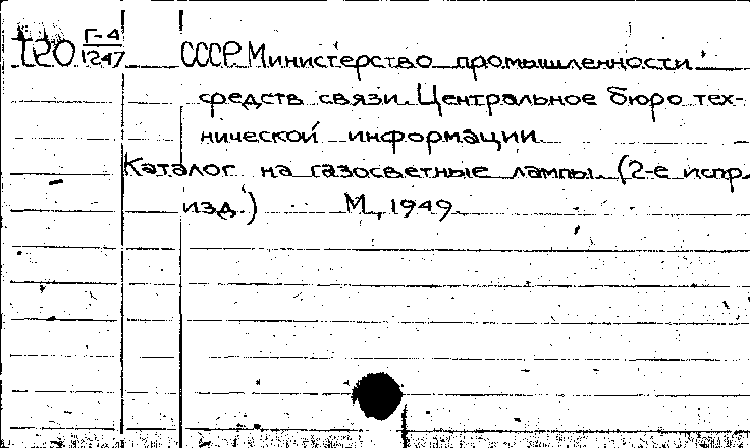 Г-4
1247
СССР Министерство промышленности
средств связи. Центральное бюро тех-
нической информации
Каталог на газосветные лампы. (2-е испр.
изд.) М., 1949